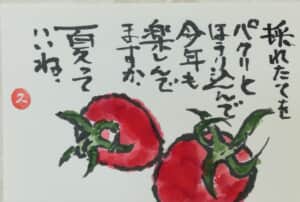 採れたてを
パクリと
ほうり込んで
今年も
楽しんで
ますか、
夏って
いいね、